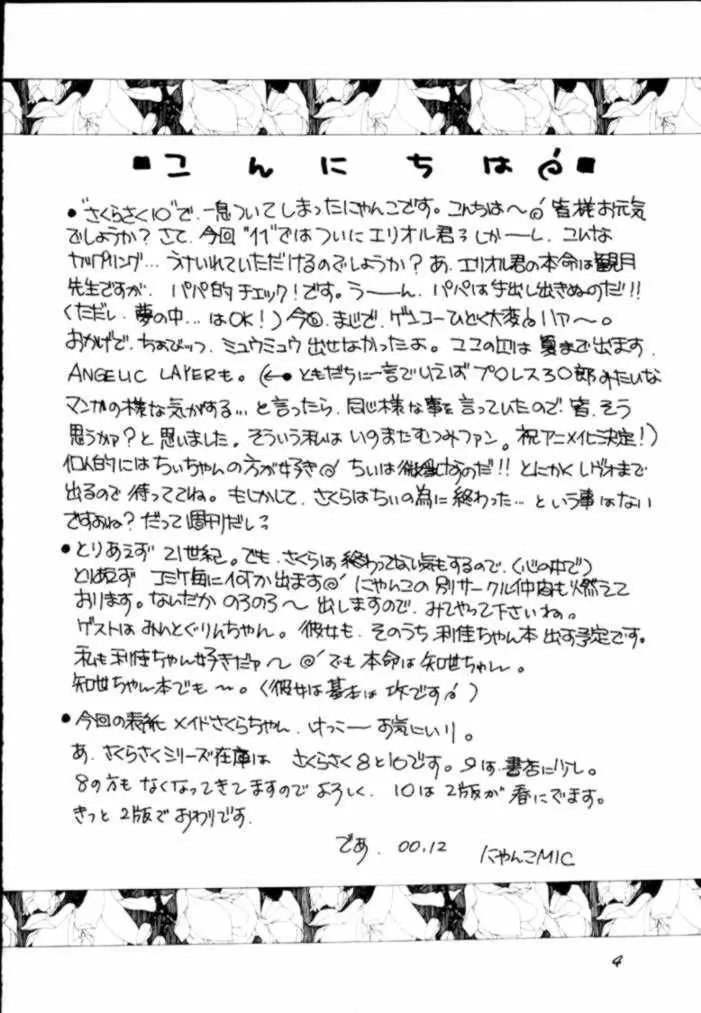 ■こんにちは■
●"さくらさく10"で、一息ついてしまったにゃんこです。こんちは〜 皆様お元気
でしょうか?さて、今回"11"ではついにエリオル君 しかーし、こんな
カップリング…うけいれていただけるのでしょうか?あ、エリオル君の本命は観月
先生ですが、パパ的チェック!です。うーーん、パパは手出し出きぬのだ!!
(ただし、夢の中…はOK!)今回、まじで、ゲンコーひどく大変 ハァ〜。
おかげで、ちょびっツ、ミュウミュウ出せなかったよ。ココの は夏まで出ます。
ANGELIC LAYERも。(←●ともだちに一言でいえばプロレス3〇郎みたいな
マンガの様な気がする…と言ったら、同じ様な事を言っていたので、皆、そう
思うかァ?と思いました。そういう私はいのまたむつみファン。祝アニメ化決定!)
個人的にはちぃちゃんの方が好き ちぃは なのだ!!とにかく まで
出るので待っててね。もしかして、さくらはちぃの為に終わった…という事はない
ですよね?だって週刊だし
●とりあえず 21世紀。でも、さくらは終わってない気もするので、(心の中で)
とりあえず コミケ毎に何か出ます にゃんこの別サークル仲間も燃えて
おります。なんだか のろのろ〜 出しますので、みてやって下さいね。
ゲストは みんとぐりんちゃん。彼女も、そのうち 利佳ちゃん本 出す予定です。
私も利佳ちゃん好きだァ〜 でも 本命は知世ちゃん。
知世ちゃん本でも〜。(彼女は基本は攻です)
●今回の表紙 メイドさくらちゃん、けっこーお気にいり。
あ、さくらさくシリーズ在庫は さくらさく8と10です。9は書店に少し。
8の方も なくなってきてますので よろしく、10は2版が 春にでます。
きっと 2版で おわりです。
であ、00.12 にゃんこMIC
4